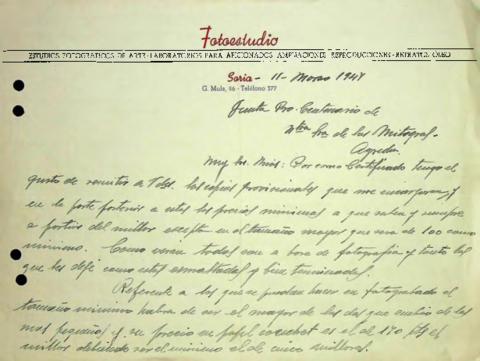 Fotoestudio
ESTUDIOS FOTOGRAFICOS DE ARTE - LABORATORIOS PARA AFICIONADOS AMPLIACIONES REPRODUCCIONES - RETRATOS OLEO
Soria - 11 - Marzo 1948
G. Mola, 16 - Teléfono 377
Junta Pro. Centenario de
Ntra Sra de los Milagros.
Agreda.
Muy Sr. Mios: Por correo Certificado tengo el
gusto de remitir a Vds. las copias provisionales que me encargaron y
en la parte posterior a estas los precios minimos a que salen y siempre
a partir del millar excepto en el tamaño mayor que sera de 100 como
minimo. Como veran todas son a base de fotografia y tanto las
que les dejé como estas esmaltadas y bien terminadas.
Referente a las que se puedan hacer en fotograbado el
tamaño minimo habra de ser el mayor de las dos que envio de las
mas pequeñas y su precio en papel couchet es el de 170 pts el
millar debiendo ser el minimo el de cinco millares.